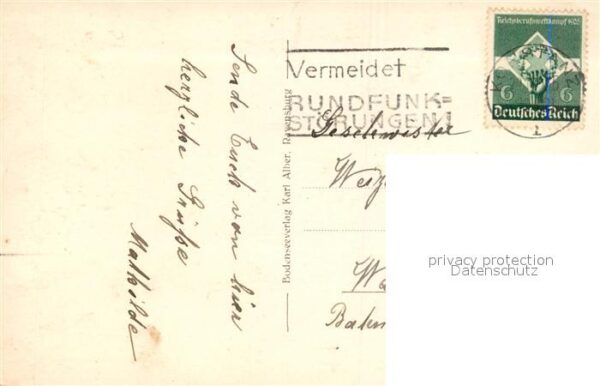 Sende Euch von hier
herzliche Grüße
Mathilde
Bodenseeverlag Karl Alber, Ravensburg
Vermeidet
RUNDFUNK=
STÖRUNGEN!
Reichsberufswettkampf 1935
6 6
Deutsches Reich
1
Geschwister
Weiz
Wa
Bahn
privacy protection
Datenschutz